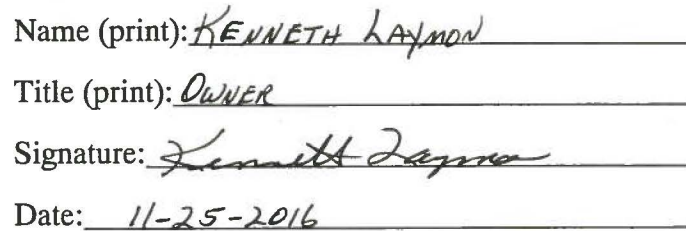 Name (print): KENNETH LAYMON
Title (print): OWNER
Signature: Kenneth Laymon
Date: 11-25-2016